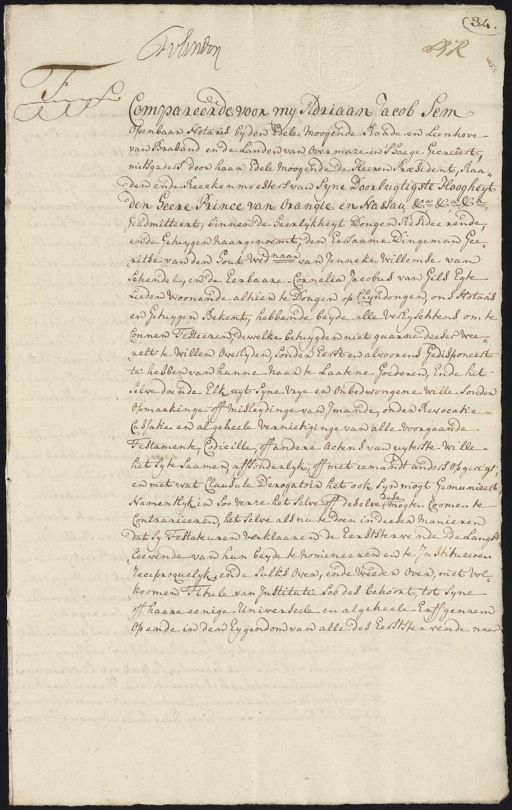 34.
Compareerde voor my Adriaan Jacob Sem
Openbaar Notaris by den Edele Moogende Raade en Leenhove
van Braband en de Landen van Overmaze in S'Hage Gecreëert,
mitsgaders door haar Edele Moogende De Heeren President, Raa-
den ende Reeckenmeesters van Syne Doorlugtigste Hoogheyt
den Heere Prince van Orangie en Nassau &ca &ca &ca
Geadmitteert, binnen de Heerlykheyt Dongen Resideerende,
ende Getuygen Naargenoemt, den Eersaame Dingeman Ge-
ritse van den Hout Wednaar van Jenneke Willemse van
Schendel, en de Eerbaare Cornelia Jacobus van Gils Egte
Lieden Woonende alhier te Dongen op Kleyndongen, ons Notaris
en Getuygen Bekent, hebbende beyde alle VerEyschtens om te
Connen Testeeren, dewelke betuygden niet gaarne deeser Wee-
relt te Willen Overlyden, Sonder Eerst en alvoorens Gedisponeert
te hebben van hunne Naar te Laatene Goederen, Ende het
selve doende Elk uyt Syne Vrye en Onbedwongene Wille Sonder
Opmaakinge off misleydinge van Jmande, onder Revocatie
Cassatie en algeheele Vernietiginge van alle Voorgaande
Testament, Codicille, off andere Actens van uyterste Wille
het Syt Saamen, affsonderlyk, off met iemandt anders Opgeregt,
en met wat Clausule Derogatoir het ook Syn mogt Gemunieert,
Namentlyk in Soo verre het Selve off deselve dese mogten Coomen te
Contrarieeren, het selve als nu te doen in deesen Manieren
Dat Sy Testateuren Verklaaren de Eerststervende De Langst
Leevende van hun beyde te Nomineeren en te Jnstitueeren
Reciproquelyk, ende Sulks Over, ende Weeder Over, met Vol-
koomen Titule van Jnstitutie Soo das behoort, tot Syne
off haare eenige Universeele en algeheele Erffgenaem
Op ende in den Eygendom van alle des Eerststervende naer